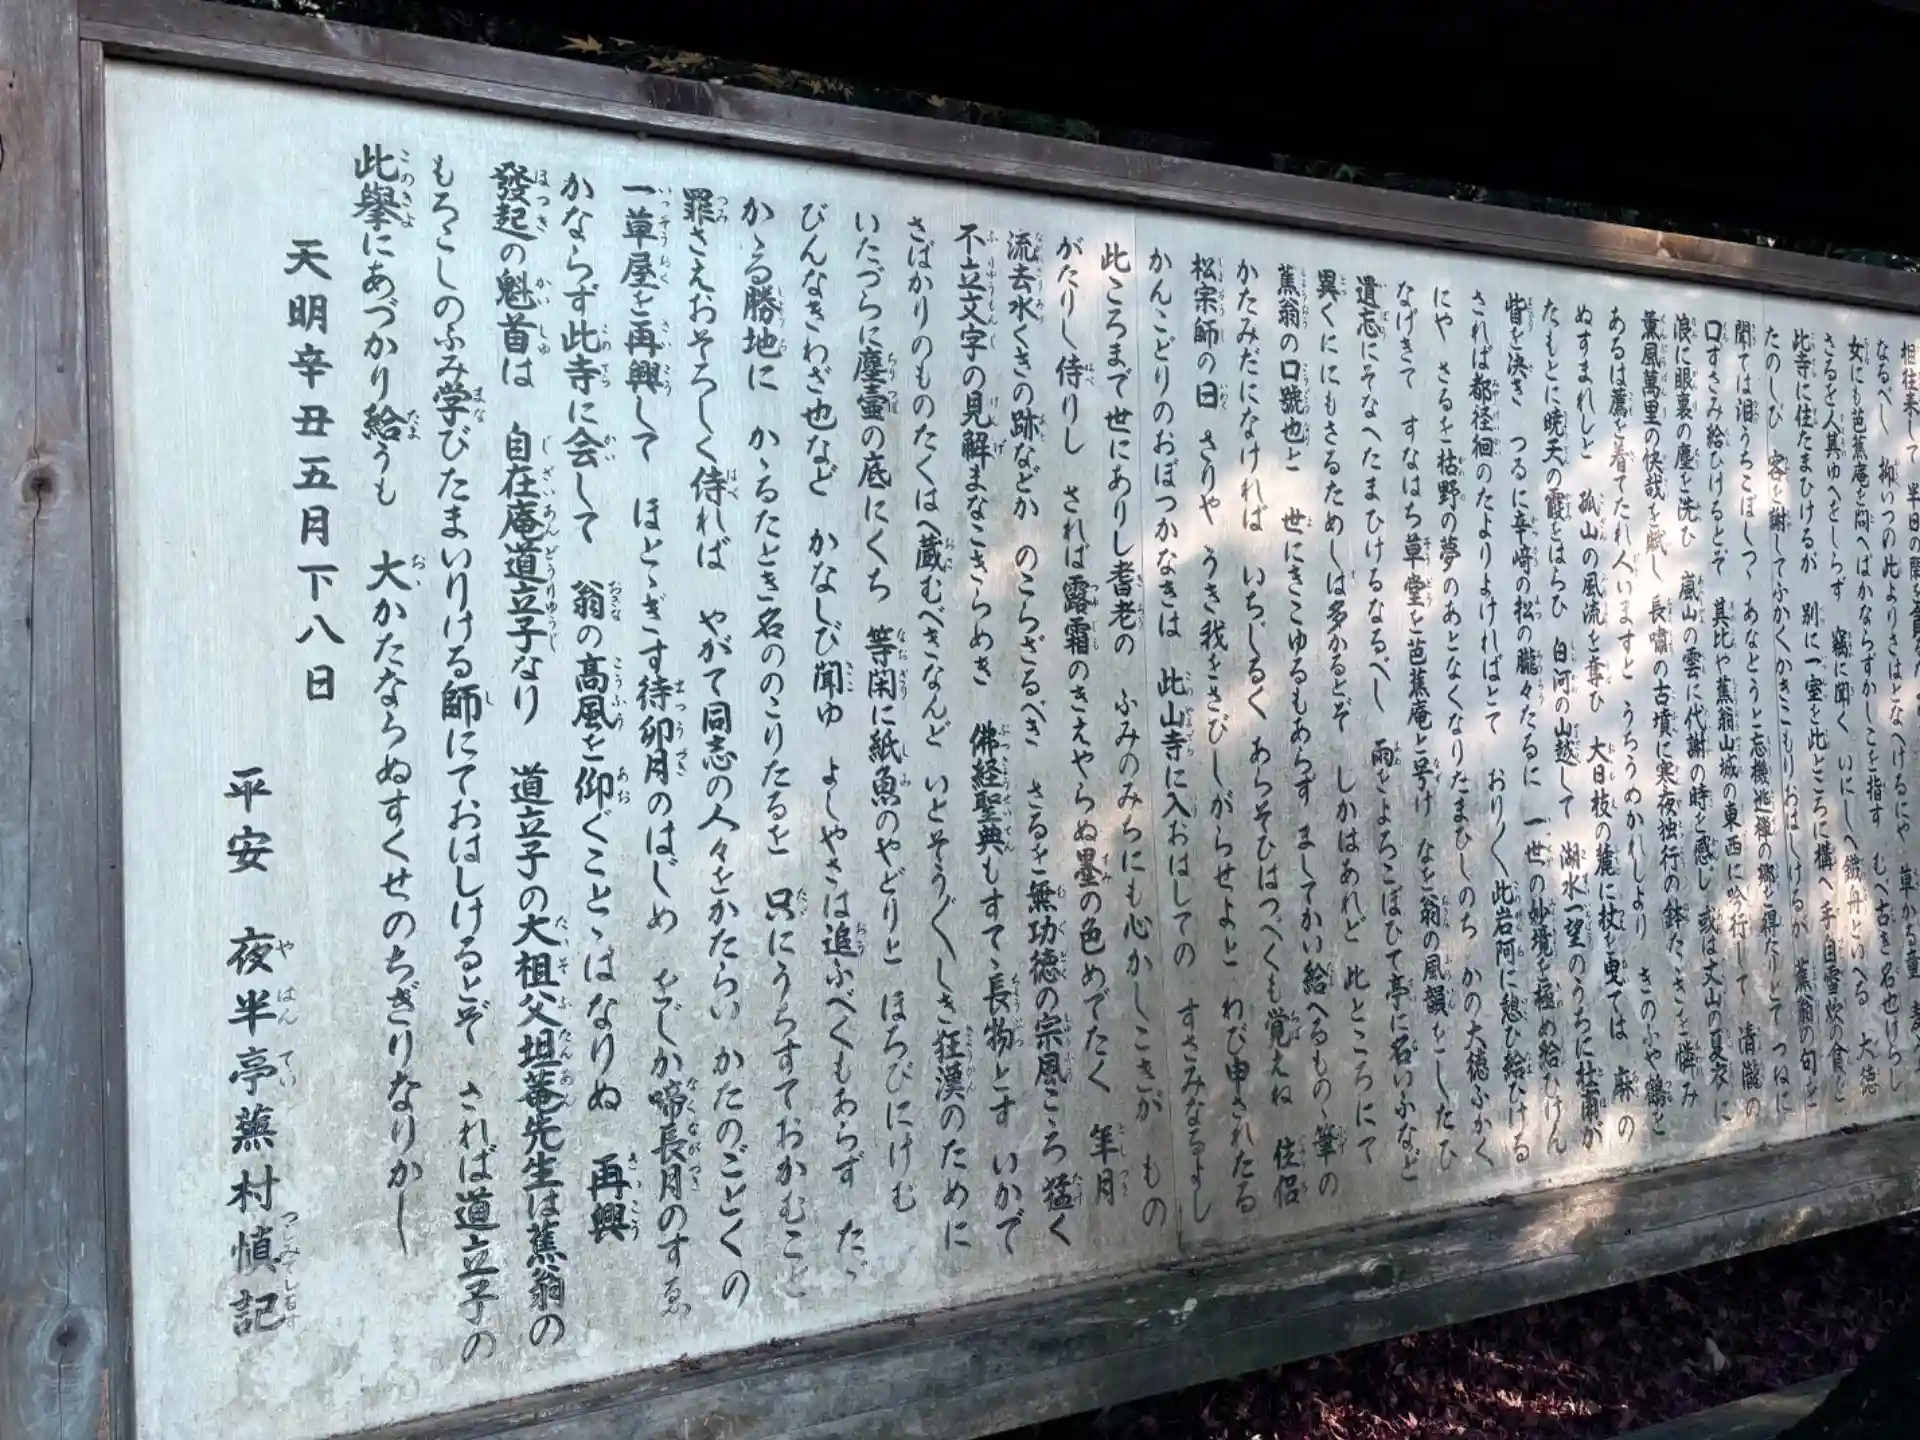 相往来して 半日の閑を
なるべし 抑いつの比よりさはとなへけるにや 草かる童
女にも芭蕉庵を問へばかならずかしこを指す むべ古き名也けらし
さるを人其ゆへをしらず 竊に聞く いにしへ鐵舟といへる 大徳
此寺に住たまひけるが 別に一室を此ところに構へ 手自雪炊の貧を
たのしび 客を謝してふかくかきこもりおはしけるが 蕉翁の句を
聞ては泪うちこぼしつゝ あなとうと忘機逃禅の郷を得たりとて つねに
口ずさみ給ひけるとぞ 其比や蕉翁山城の東西に吟行して 清瀧の
浪に眼裏の塵を洗ひ 嵐山の雲に代謝の時を感じ 或は丈山の夏衣に
薫風萬里の快哉を賦し 長嘯の古墳に寒夜独行の鉢たゝきを憐み
あるは薦を着てたれ人いますと うちうめかれしより きのふや鶴を
ぬすまれしと 孤山の風流を奪ひ 大日枝の麓に杖を曳ては 麻の
たもとに暁天の霞をはらひ 白河の山越して 湖水一望のうちに杜甫が
眥を決き つゐに辛崎の松の朧々たるに 一世の妙境を極め給ひけん
されば都径徊のたよりよければとて おりく此岩阿に憩ひ給ひける
にや さるを枯野の夢のあとなくなりたまひしのち かの大徳ふかく
なげきて すなはち草堂を芭蕉庵と号け なを翁の風韻をしたひ
遺忘にそなへたまひけるなるべし 雨をよろこぼひて亭に名いふなど
異くににもさるためしは多かるとぞ しかはあれど 此ところにて
蕉翁の口號也と 世にきこゆるもあらず ましてかい給へるものゝ筆の
かたみだになければ いちじるく あらそひはつべくも覚えね 住侶
松宗師の曰 さりや うき我をさびしがらせよと わび申されたる
かんこどりのおぼつかなきは 此山寺に入おはしての すさみなるよし
此ころまで世にありし耆老の ふみのみちにも心かしこきが もの
がたりし侍りし されば露霜のきえやらぬ墨の色めでたく 年月
流去水くきの跡などか のこらざるべき さるを無功徳の宗風こゝろ猛く
不立文字の見解まなこきらめき 佛経聖典もすてゝ長物とす いかで
さばかりのものたくはへ蔵むべきなんど いとそうぐしき狂漢のために
いたづらに塵壷の底にくち 等閑に紙魚のやどりと ほろびにけむ
びんなきわざ也など かなしび聞ゆ よしやさは追ふべくもあらず たゞ
かゝる勝地に かゝるたとき名ののこりたるを 只にうちすておかむこと
罪さえおそろしく侍れば やがて同志の人々をかたらい かたのごとくの
一草屋を再興して ほとゝぎす待卯月のはじめ をじか啼長月のすゑ
かならず此寺に会して 翁の高風を仰ぐことゝはなりぬ 再興
發起の魁首は 自在庵道立子なり 道立子の大祖父坦菴先生は蕉翁の
もろこしのふみ学びたまいりける師にておはしけるとぞ されば道立子の
此擧にあづかり給うも 大かたならぬすくせのちぎりなりかし
天明辛丑五月下八日
平安 夜半亭蕪村慎記